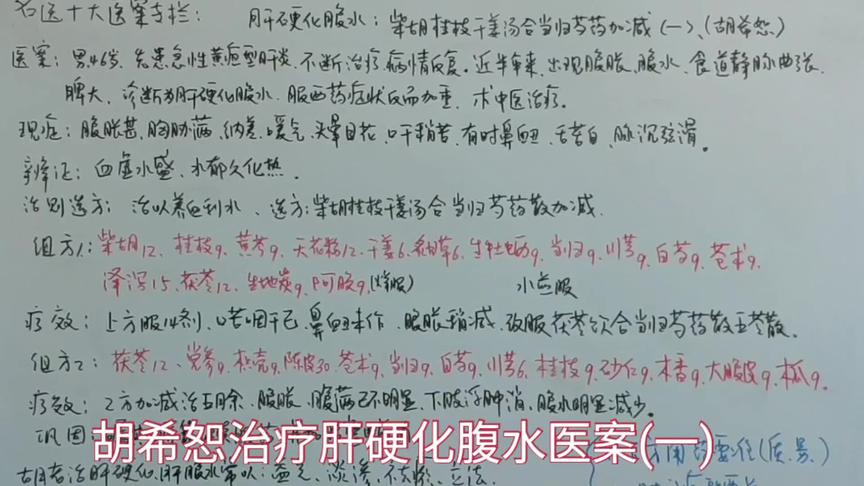 名医十大医案专栏： 肝硬化腹水：柴胡桂枝干姜汤合当归芍药加减（一）、（胡希恕）
医案：男、46岁、先患急性黄疸型肝炎、不断治疗病情反复。近半年来、出现腹胀、腹水、食道静脉曲张、
脾大、诊断为肝硬化腹水、服西药症状反而加重、求中医治疗。
现症：腹胀甚、胸胁满、纳差、嗳气、头晕目花、口干稍苦、有时鼻衄、舌苔白、脉沉弦滑。
辨证：血虚水盛、水郁久化热。
治则选方：治以养血利水、选方：柴胡桂枝干姜汤合当归芍药散加减.
组方1：柴胡12、桂枝9、黄芩9、天花粉12、干姜6、炙甘草6、生牡蛎9、当归9、川芎9、白芍9、苍术9、
泽泻15、茯苓12、生地炭9、阿胶9（烊服） 水煎服
疗效：上方服14剂、口苦咽干已、鼻血未作、腹胀稍减、改服茯苓饮合当归芍药散五苓散。
组方2：茯苓12、党参9、枳壳9、陈皮30、苍术9、当归9、白芍9、川芎6、桂枝9、砂仁9、木香9、大腹皮9、木瓜9。
疗效：2方加减治5月余、腹胀、腹满已不明显、下肢浮肿消、腹水明显减少。
巩固：
胡希恕治疗肝硬化腹水医案(一)
胡老治肝硬化、肝腹水常以：益气、淡渗、不去瘀、立法
方用药量注（原、景）